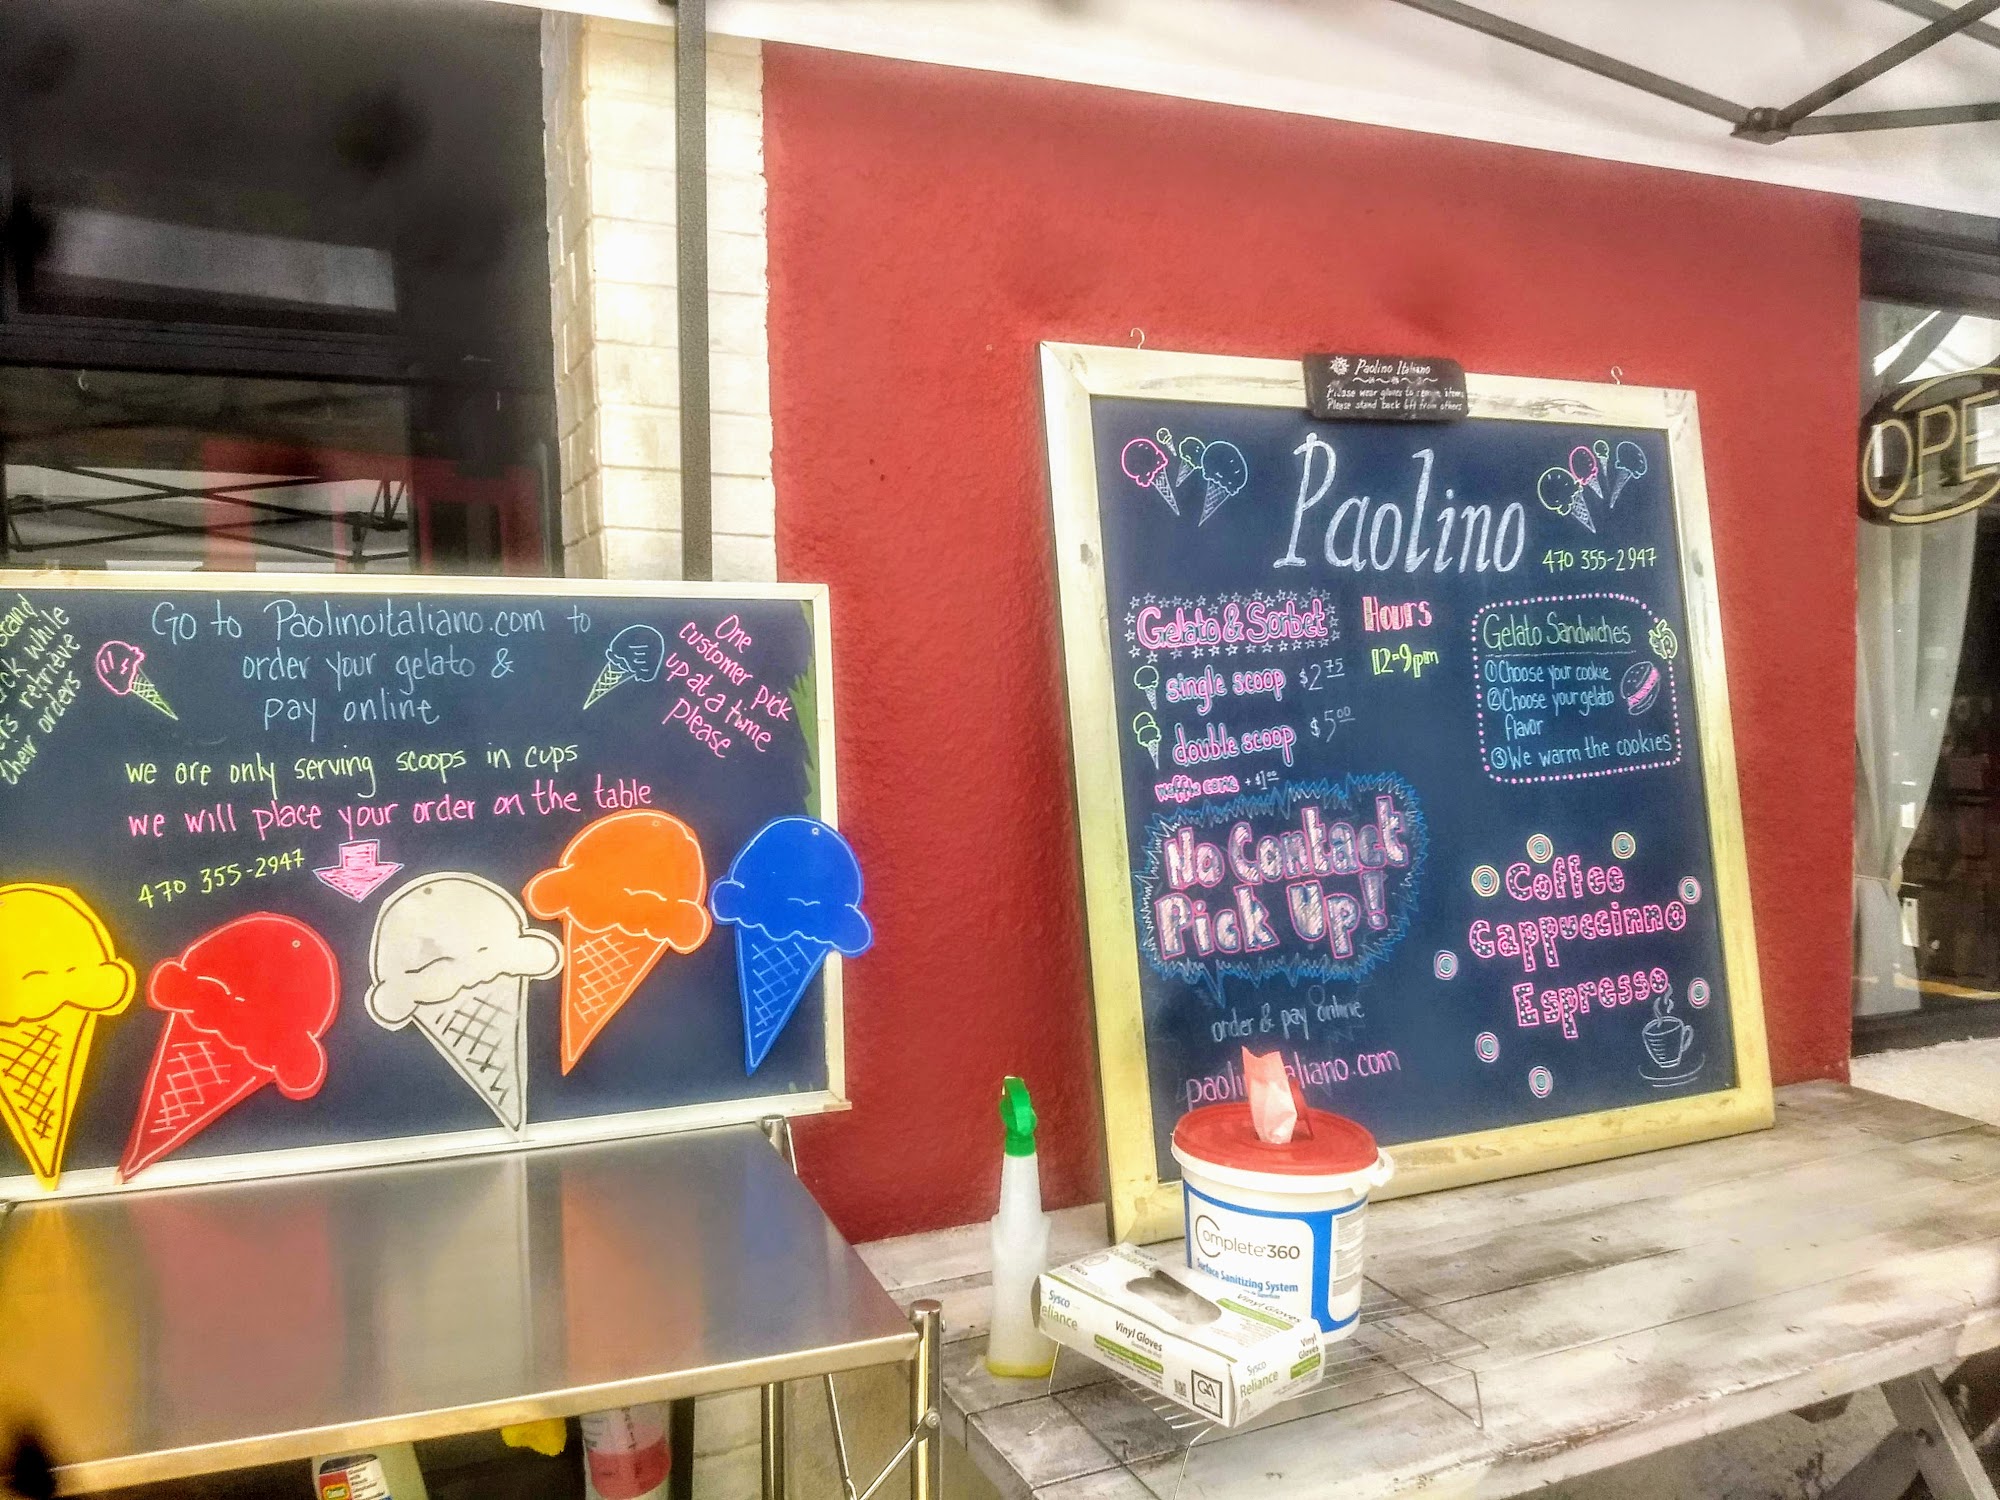 stand
back while
retrieve
their orders
Go to Paolinoitaliano.com to
order your gelato &
pay online
One
customer pick
up at a time
please
we are only serving scoops in cups
we will place your order on the table
470 355-2947
Paolino Italiano
Please wear gloves to items
Please stand back 6ft from others
Paolino
470 355-2947
Gelato & Sorbet
single scoop $2 75
double scoop $5 00
waffle cone + $1 00
Hours
12-9pm
Gelato Sandwiches
① Choose your cookie
② Choose your gelato
flavor
③ We warm the cookies
No Contact
Pick Up!
order & pay online
paolinoitaliano.com
Coffee
Cappuccinno
Espresso
OPE
Complete 360
Surface Sanitizing System
Sysco
Reliance
Vinyl Gloves
Vinyl Gloves
Vinyl
Gloves
Sysco
Reliance
QA